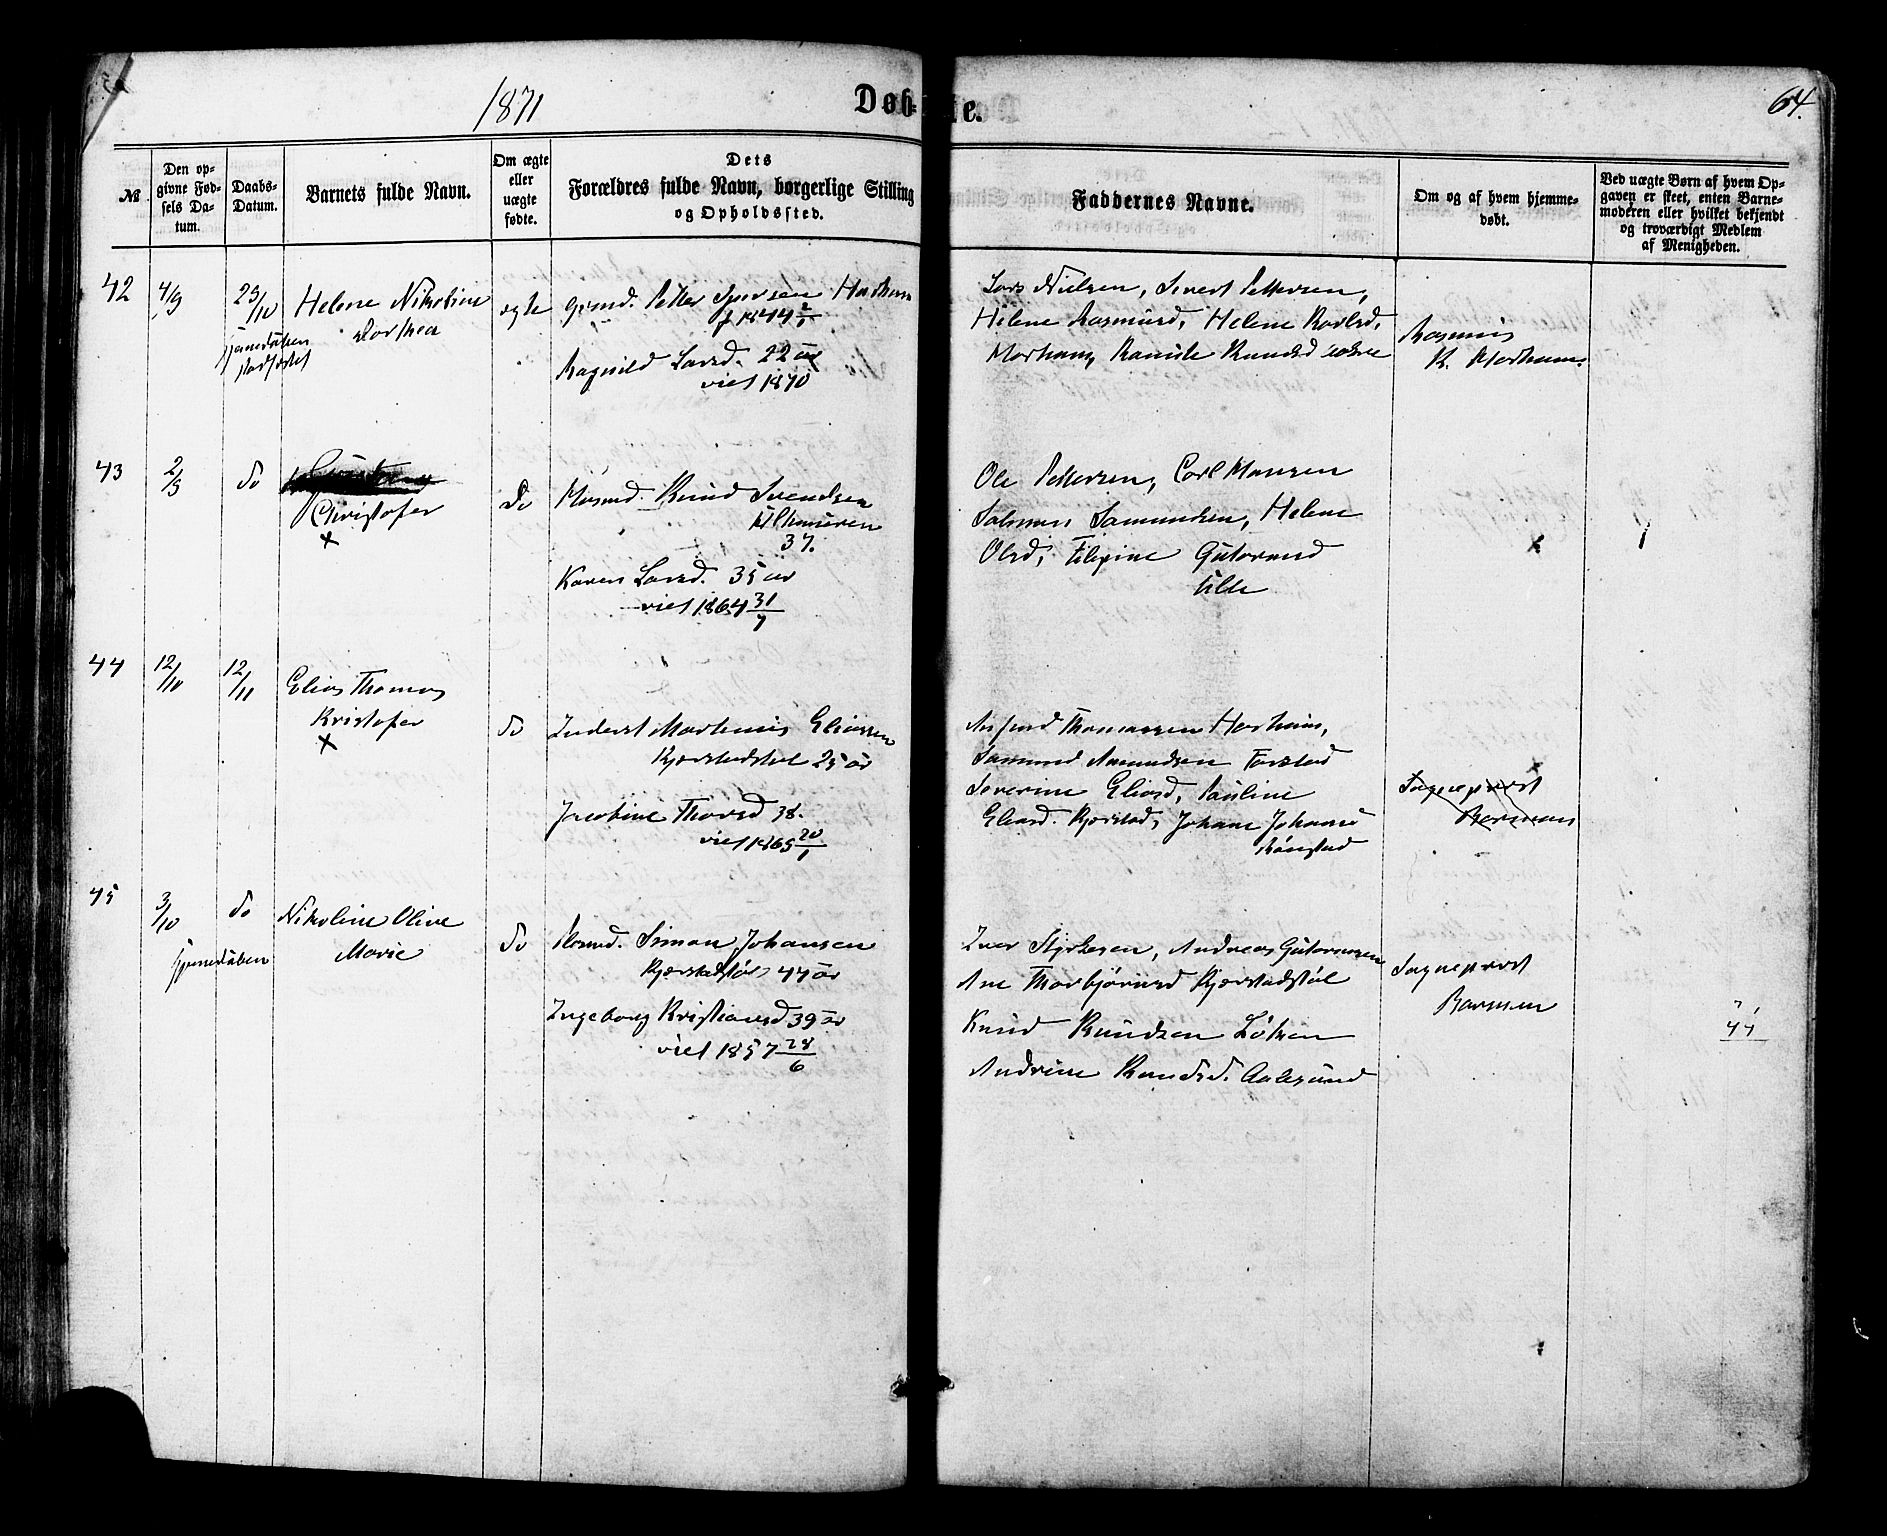 1871
Døb-
te.
64.
No
Den op-
givne Fød-
sels Da-
tum.
Daabs-
Datum.
Barnets fulde Navn.
Om ægte
eller
uægte
fødte.
Dets
Forældres fulde Navn, borgerlige Stilling
og Opholdssted.
Faddernes Navne.
Om og af hvem hjemme-
døbt.
Ved uægte Børn af hvem Op-
gaven er skeet, enten Barne-
moderen eller hvilket bekjendt
og troværdigt Medlem
af Menigheden.
42
4/9
29/10
Helene Nikoline
Dorthea
ægte
Petter Iversen Harham
f 1844 2/1
Ragnild Larsd. 22 aar
viet 1870
Lars Nielsen, Sivert Pettersen,
Helene Rasmusd, Helene Roaldsd,
Harham, Knudsd
Rasmus
K. Harham
43
2/9
do
Christofer
x
do
Husmd. Knud Svendsen
37.
Karen Larsd. 35 aar
viet 1864 31/7
Ole Pettersen, Carl Hansen
Salmon Samundsen, Helene
Olsd, Filipine Gutormsd
Ulle
x
1
44
12/10
12/11
Elias Thomas
Kristofer
x
do
Inderst Marthinus Eliassen
Kjærstadstøl 25 aar
Jacobine Thorsd 38.
viet 1865 20/1
Thomassen Harham,
Samund Amundsen
Severine Eliasd, Pauline
Eliasd. Kjærstad, Johane
x
Sogneprest
45
3/10
do
hjemedøben
Nikoline Olive
Marie
do
Husmd. Simon Johansen
Kjærstadstøl 44 aar
Ingeborg Kristiansd 39 aar
viet 1857 28/6
Iver Styrkesen, Andreas Gutormsen
Ane Thorbjørnsd Kjærstadstøl
Knud Knudsen Løken
Andrine Knudsd. Aalesund
Sogneprest